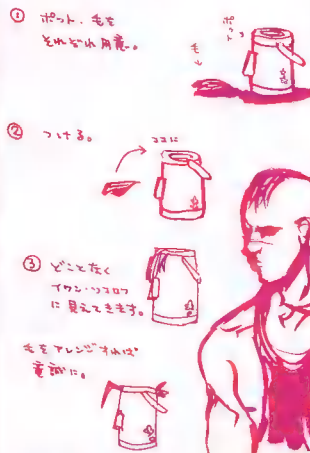 ① ポット、毛を
それぞれ用意。
ポット
毛
② つける。
ココに
③ どことなく
イワン・ソコロフ
に見えてきます。
毛をアレンジすれば
童誠に。